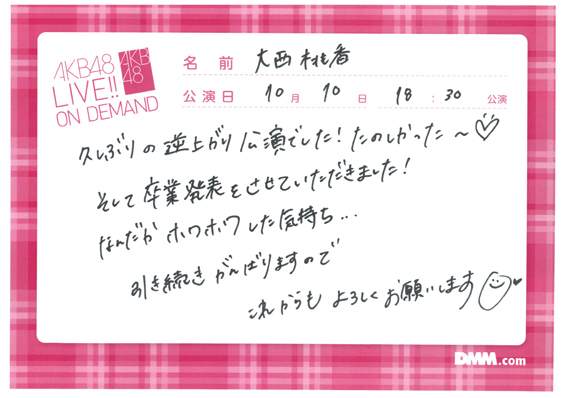 AKB48
LIVE!!
ON DEMAND
AKB
48
名前 大西桃香
公演日 10月 10日 18:30 公演
久しぶりの逆上がり公演でした!たのしかった〜♡
そして卒業発表をさせていただきました!
なんだかホワホワした気持ち...
引き続きがんばりますので
これからもよろしくお願いします
DMM.com